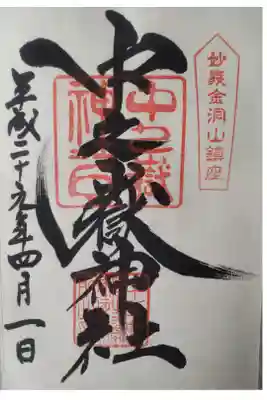 妙義金洞山鎮座
中之嶽
中之嶽神社
平成二十九年四月一日